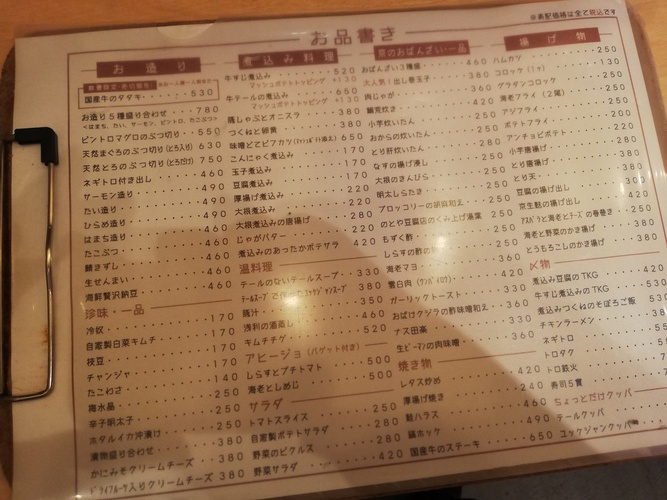 お品書き
※表記価格は全て税込です
お造り
国産牛のタタキ 530
お造り5種盛り合わせ 780
ビントロマグロのぶつ切り 550
天然まぐろのぶつ切り(とろ入り) 630
天然とろのぶつ切り(とろだけ) 750
ネギトロ付き出し 460
サーモン造り 490
たい造り 490
ひらめ造り 490
はまち造り 460
たこぶつ 460
鯖きずし 460
生せんまい 460
海鮮贅沢納豆
珍味・一品
冷奴 170
自家製白菜キムチ 170
枝豆 170
チャンジャ 140
たこわさ 250
梅水晶 250
辛子明太子 250
ホタルイカ沖漬け 380
漬物盛り合わせ 380
かにみそクリームチーズ 380
ドライフルーツ入りクリームチーズ 380
煮込み料理
牛すじ煮込み 520
マッシュポテトトッピング +130
牛テールの煮込み 650
マッシュポテトトッピング +130
豚しゃぶ入り
つくねと卵黄 380
味噌とてピアカツ 650
こんにゃく煮込み 170
玉子煮込み 170
豆腐煮込み 170
厚揚げ煮込み 220
大根煮込み 220
大根煮込みの唐揚げ 280
じゃがバター 220
煮込みのあったかポテサラ 420
温料理
テールのないテールスープ 330
豚汁 350
浅利の酒蒸し 460
キムチチゲ 520
アヒージョ(バゲット付き)
しらすとプチトマト 500
海老としめじ 500
サラダ
トマトスライス 250
自家製ポテトサラダ 280
野菜のピクルス 380
野菜サラダ 420
京のおばんざい一品
おばんざい3種盛 460
大人気!出し巻玉子 380
肉じゃが 380
鯛荒炊き 420
小芋炊いたん 250
おからの炊いたん 250
とり肝炊いたん 280
なすの揚げ浸し 250
大根のきんぴら 250
明太しらたき 250
ブロッコリーの胡麻和え 250
のとや豆腐店のくみ上げ湯葉 250
もずく酢 250
しらすの酢の物
海老マヨ 360
雲白肉(ウンパイロウ) 420
ガーリックトースト 330
おばけクジラの酢味噌和え 360
ナス田楽 330
生ピーマンの肉味噌 360
焼き物
レタス炒め 240
厚揚げ焼き 460
鮭ハラス 490
縞ホッケ 490
国産牛のステーキ 650
揚げ物
ハムカツ 250
コロッケ 130
グラタンコロッケ 250
海老フライ(2尾) 250
アジフライ 250
ポテトフライ 200
アンチョビポテト 250
小芋唐揚げ 250
とり唐揚げ 380
とり天 380
豆腐の揚げ出し 300
京生麩の揚げ出し 420
アスパラと海老とチーズの春巻き 250
海老と野菜のかき揚げ 380
とうもろこしのかき揚げ 380
〆物
煮込み豆腐のTKG
牛すじ煮込みのTKG
煮込みつくねのそぼろご飯 530
チキンラーメン
ネギトロ
トロタク
トロ鉄火
寿司5貫
ちょっとだけクッパ
テールクッパ
ユッケジャンクッパ